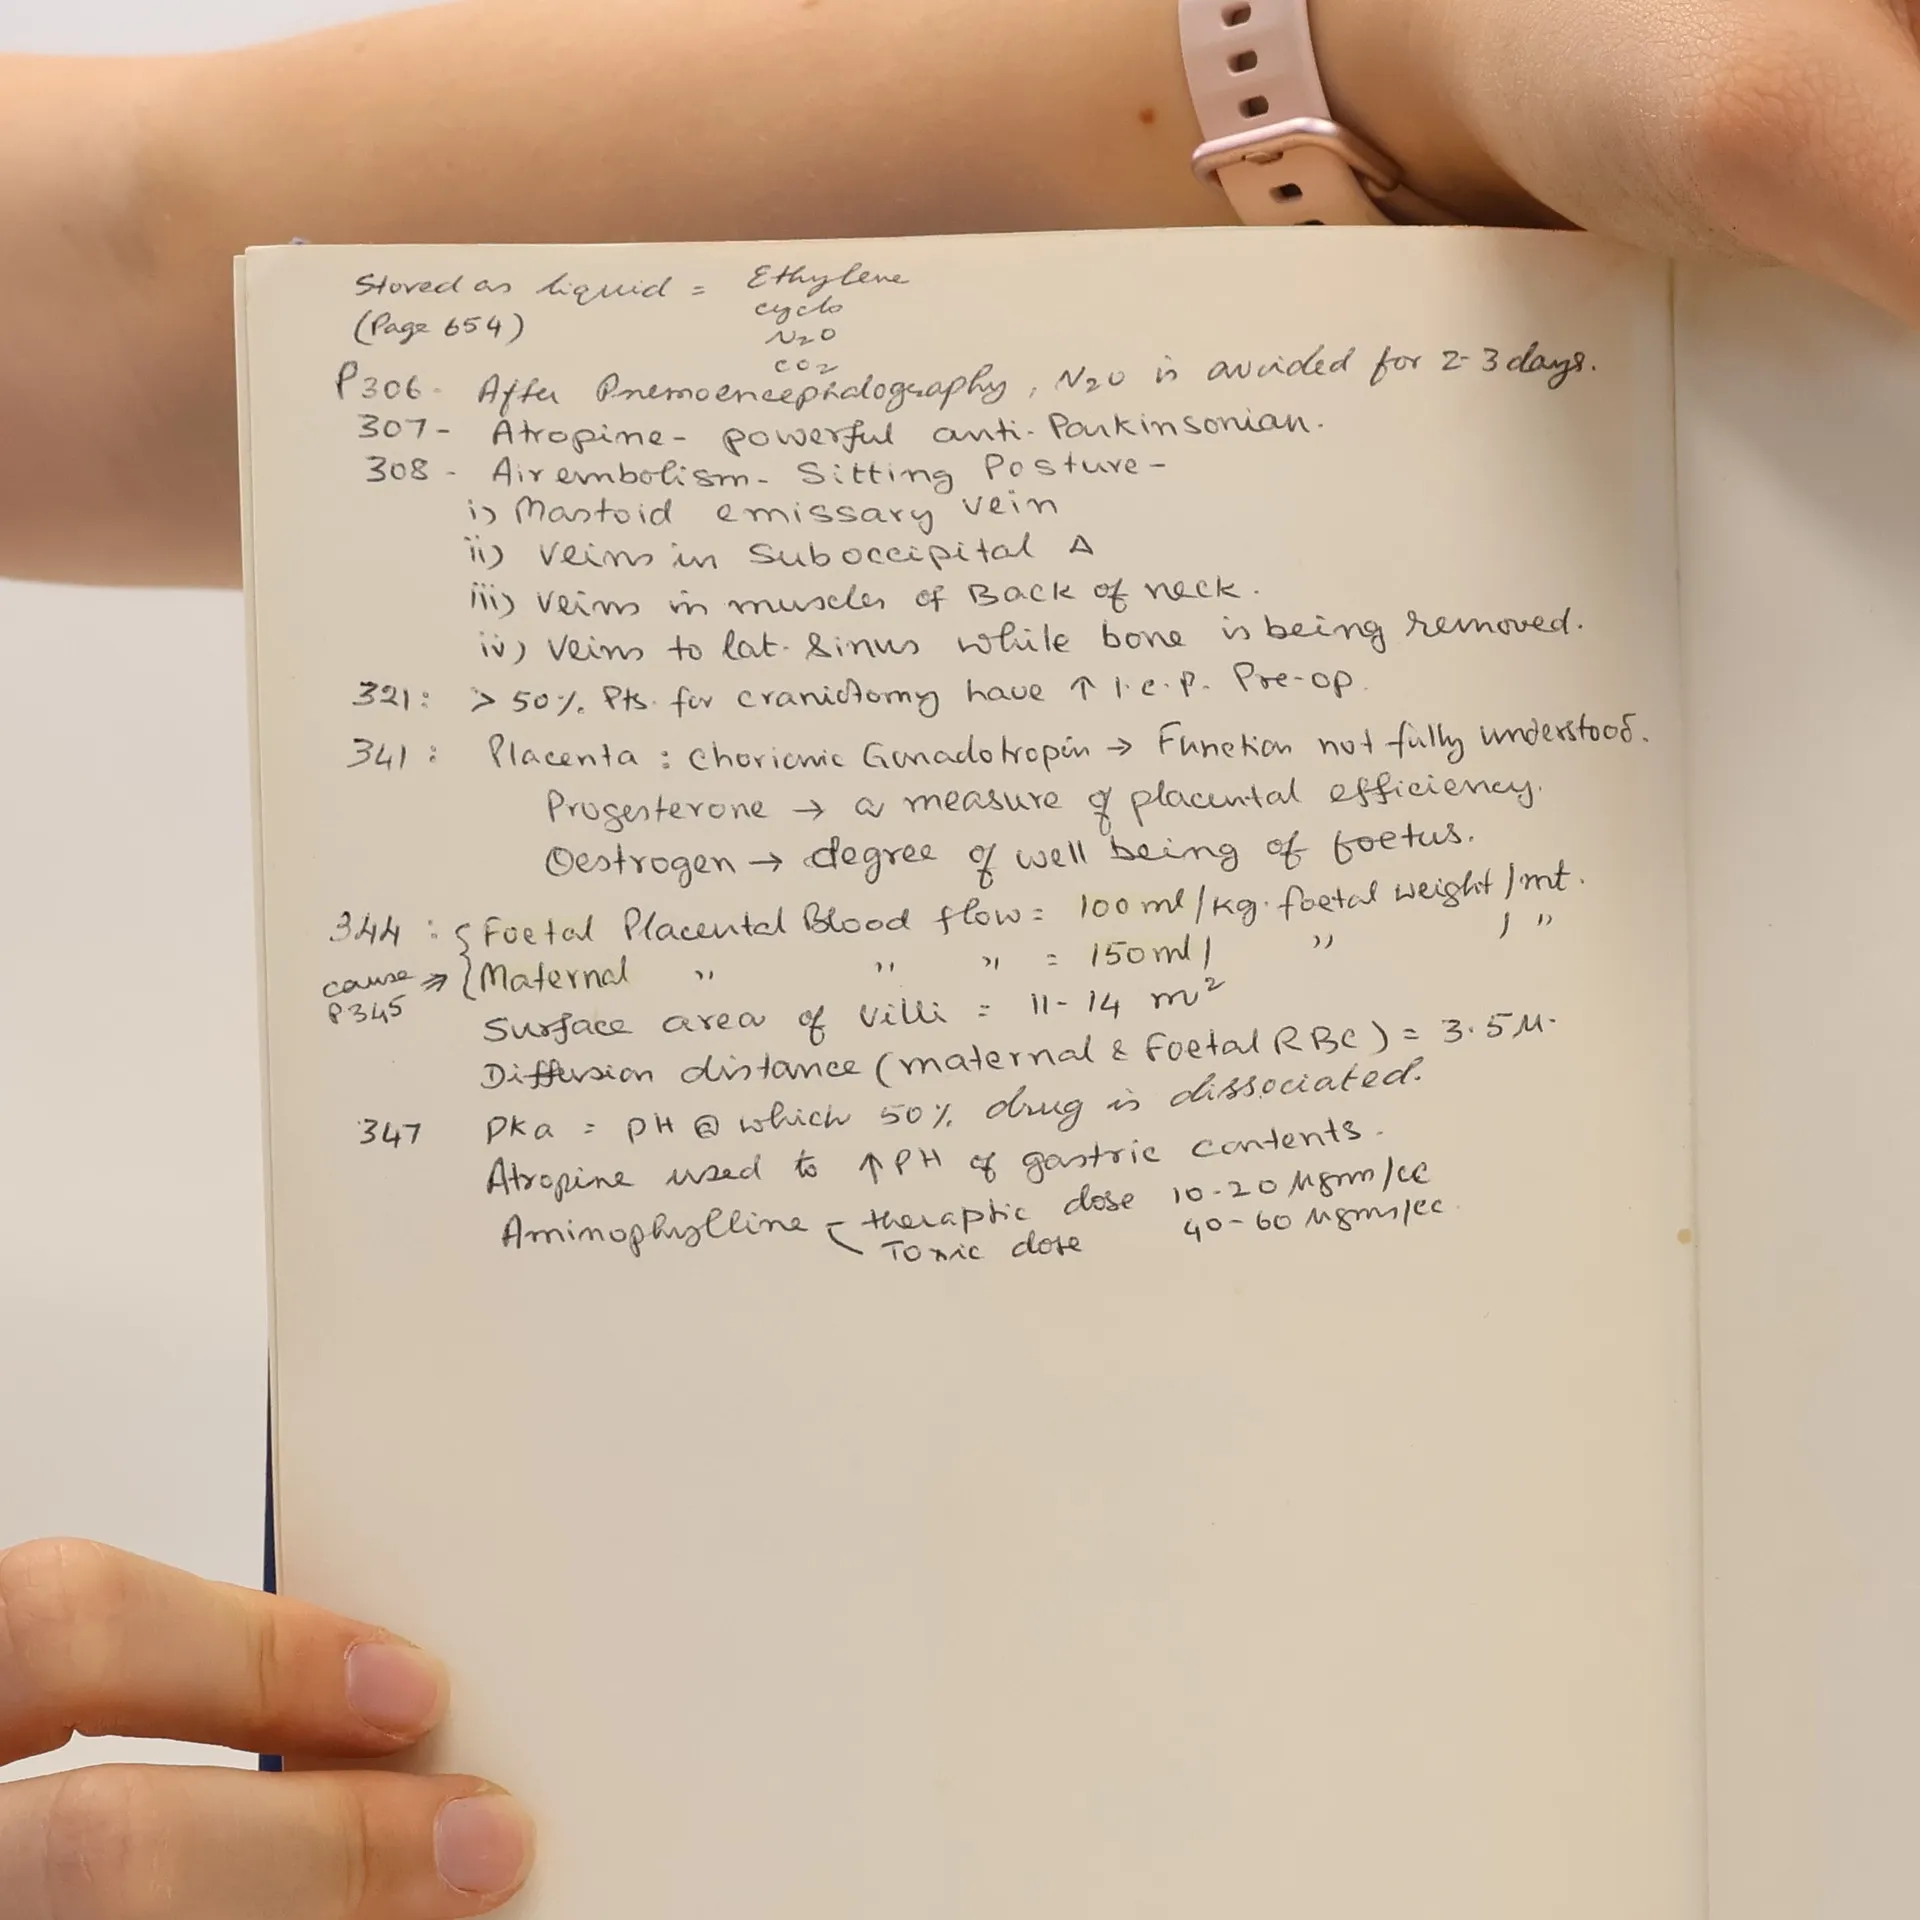 Stored as liquid = Ethylene
(Page 654) cyclo
N2O
CO2
P306- After Pnemoencephalography, N2O is avoided for 2-3 days.
307- Atropine- powerful anti-Parkinsonian.
308- Air embolism- Sitting Posture-
i) Mastoid emissary vein
ii) Veins in Suboccipital Δ
iii) Veins in muscles of Back of neck.
iv) Veins to lat. Sinus while bone is being removed.
321: > 50% Pts. for craniotomy have ↑ I.C.P. Pre-op.
341: Placenta: Chorionic Gonadotropin → Function not fully understood.
Progesterone → a measure of placental efficiency.
Oestrogen → degree of well being of foetus.
344: { Foetal Placental Blood flow = 100 ml/kg. foetal weight/mt.
cause ⇒ { Maternal " " " = 150 ml/ " / "
P345
Surface area of Villi = 11-14 m²
Diffusion distance (maternal & Foetal RBC) = 3.5 μ.
347 PKa = pH @ which 50% drug is dissociated.
Atropine used to ↑ PH of gastric contents.
Aminophylline - theraptic dose 10-20 μgm/cc
Toxic dose 40-60 μgms/cc.